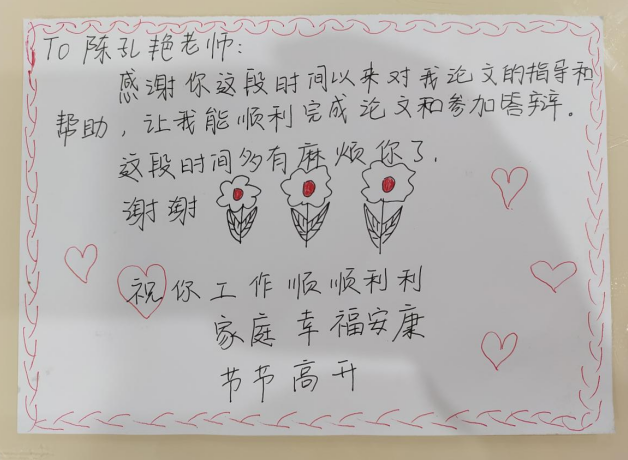 To 陈孔艳老师:
感谢你这段时间以来对我论文的指导和
帮助，让我能顺利完成论文和参加答辩。
这段时间多有麻烦你了.
谢谢
祝你工作顺顺利利
家庭幸福安康
节节高升